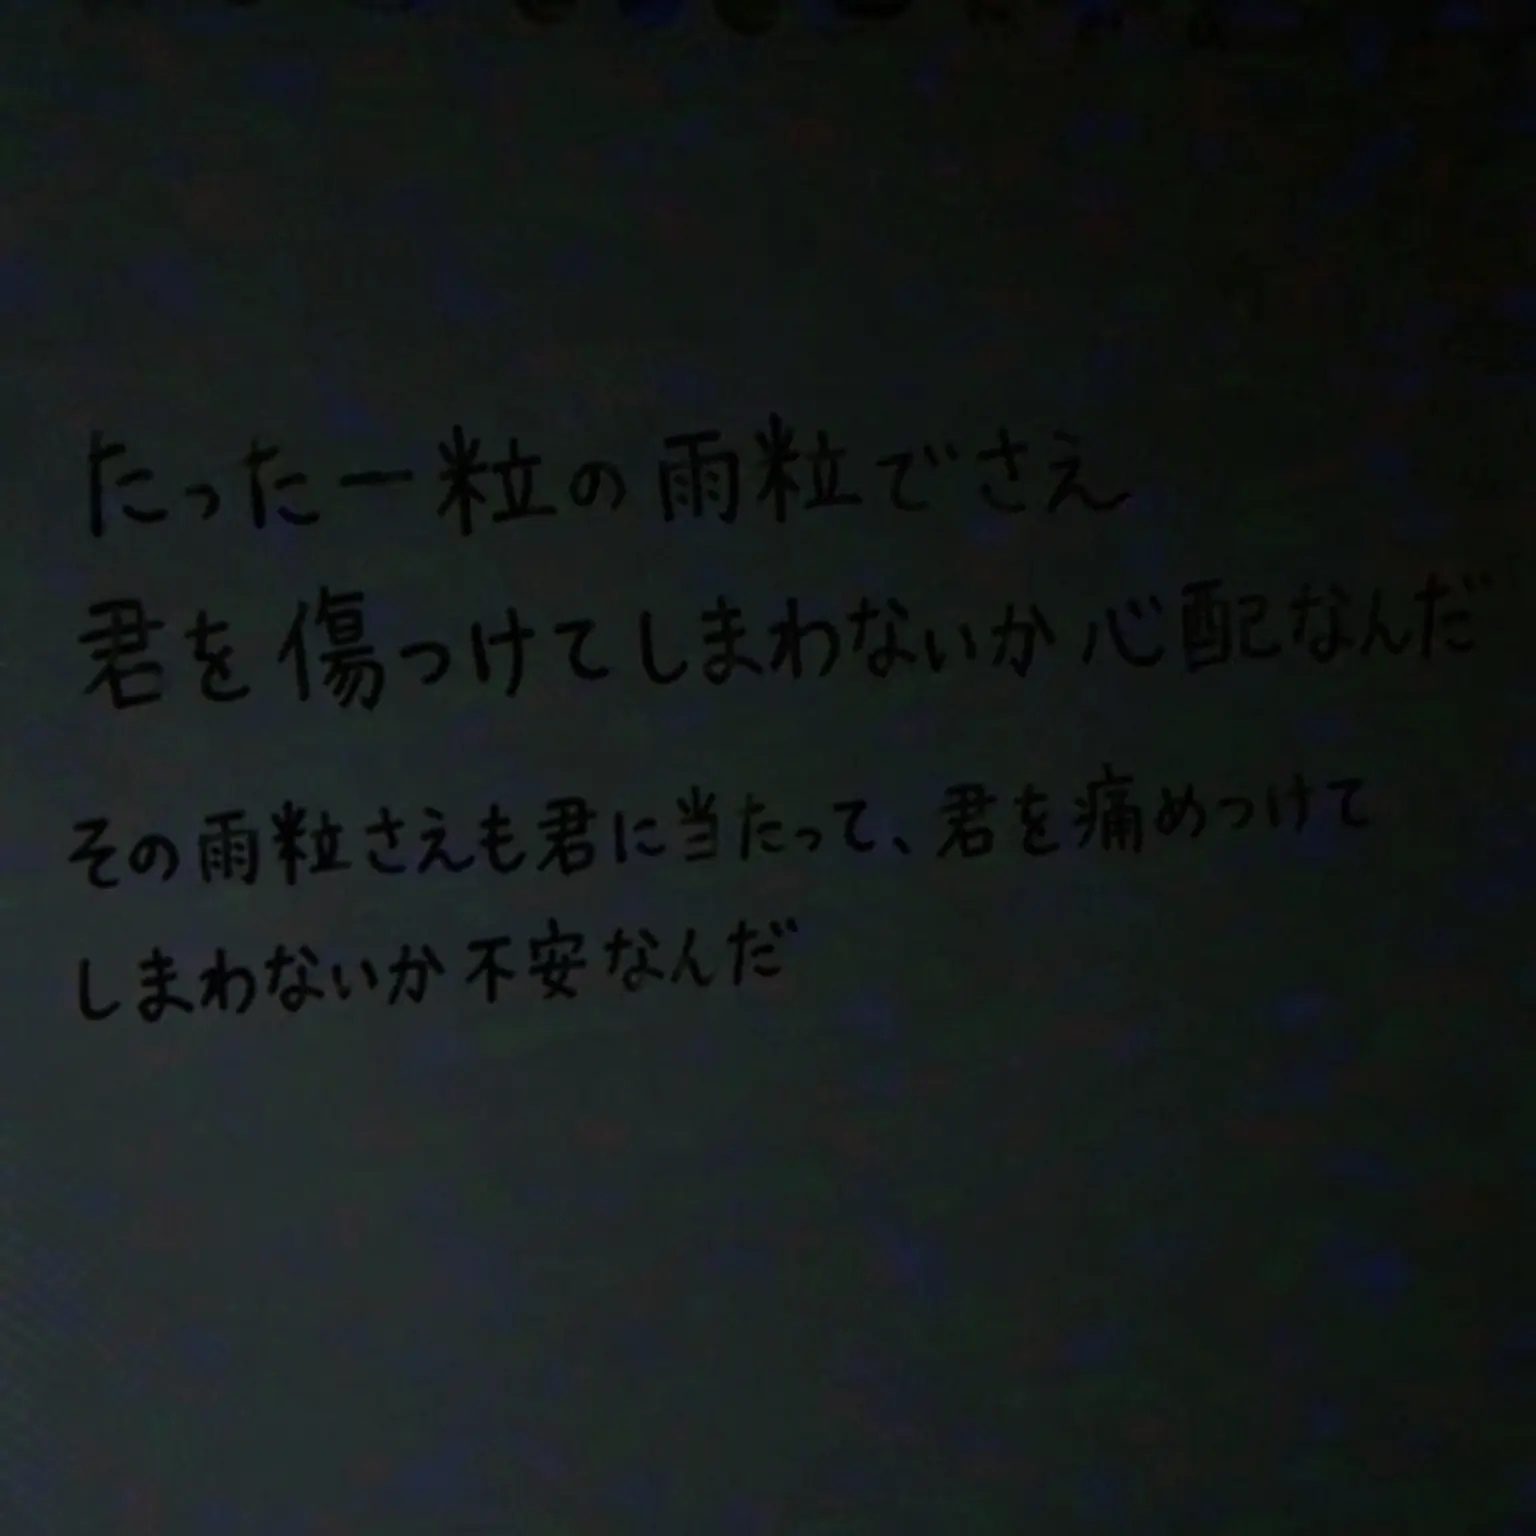 たった一粒の雨粒でさえ
君を傷つけてしまわないか心配なんだ
その雨粒さえも君に当たって、君を痛めつけて
しまわないか不安なんだ